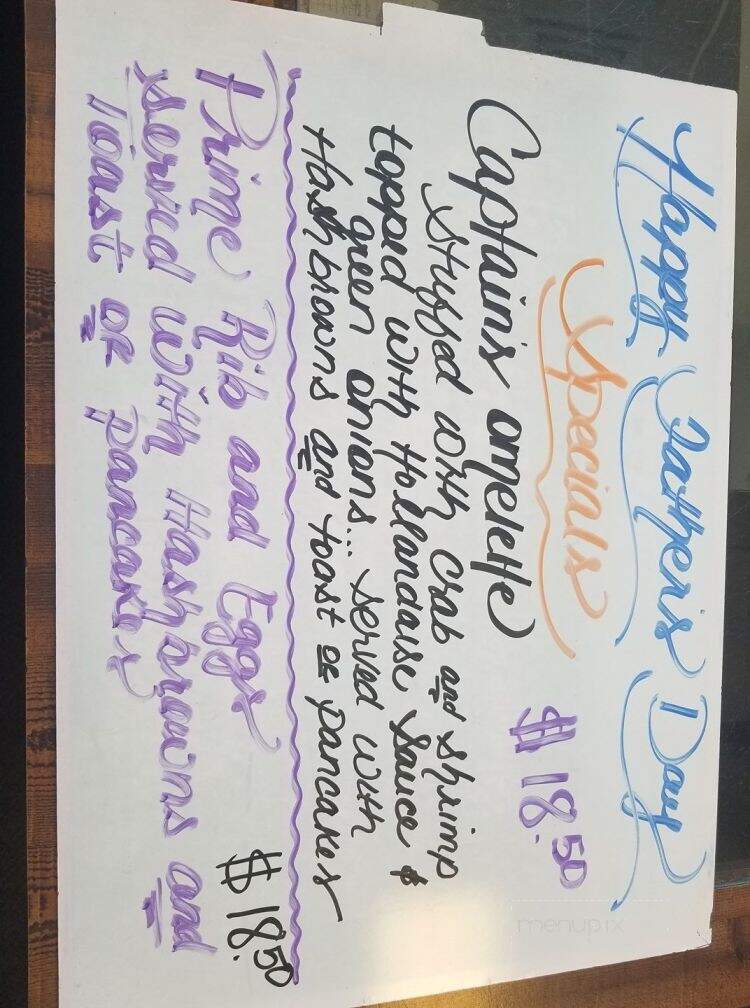 Happy Father's Day
Specials
Captain's omelette $18.50
stuffed with crab and shrimp
topped with Hollandaise sauce &
green onions... served with
Hashbrowns and toast or pancakes
Prime Rib and Eggs $18.50
served with Hashbrowns and
toast or pancakes
menupix